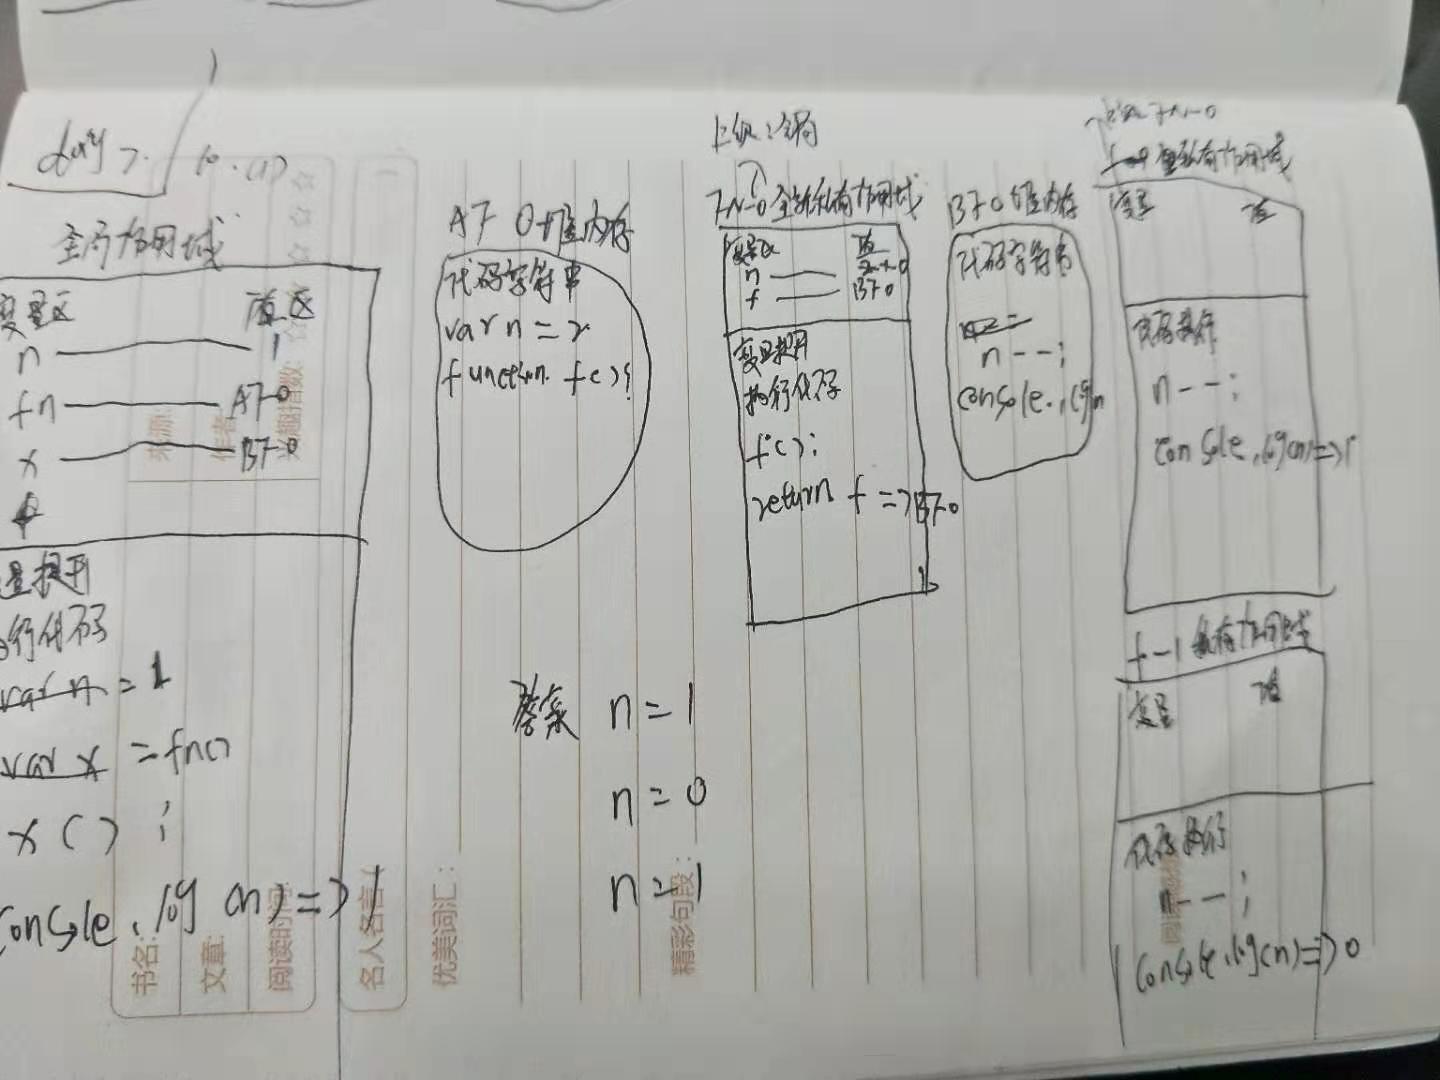 day7. 10.17
全局作用域
变量区 值区
n 1
fn AF0
x BF0
f
量提升
行代码
var n = 1
var x = fn()
x() ;
console.log(n)=>1
AF0堆内存
代码字符串
var n = 2
function f(){
答案 n=1
n=0
n=1
上级:全局
FN-0 私有作用域
变量区 值
n 2 1 0
f BF0
变量提升
执行代码
f();
return f =>BF0
BF0堆内存
代码字符串
n--;
console.log n
上级 FN-0
f-0 私有作用域
变量 值
代码执行
n--;
console.log(n)=>1
f-1 私有作用域
变量 值
代码执行
n--;
console.log(n)=>0
书名:
文章:
阅读时间:
来源:
作者:
兴趣指数: ☆☆☆☆
名人名言
优美词汇:
精彩句段: